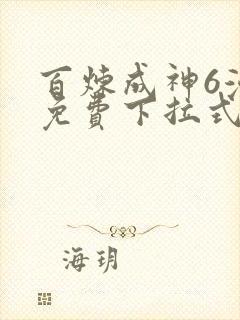 百炼成神6
免費下拉式
海玥